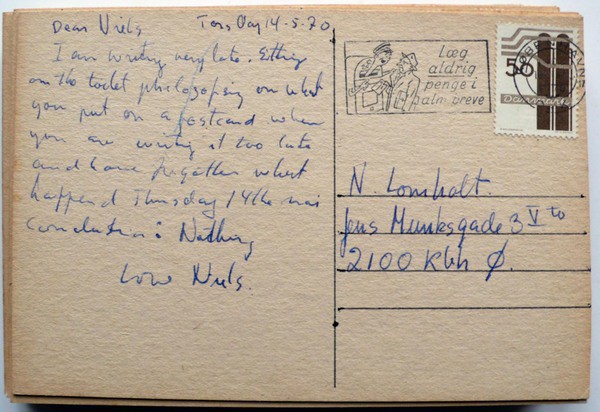 Dear Niels Torsday 14-5-70
I am writing very late. Sitting
on the toilet philosofising on what
you put on a postcard when
you are writing it too late
and have forgotten what
happend Thursday 14the mai
Conclution: Nothing
Love Niels.
Læg
aldrig
penge i
alm. breve
KØBENHAVN
50
DANMARK
N. Lomholt.
Jens Munksgade 3 V to
2100 Kbh Ø.